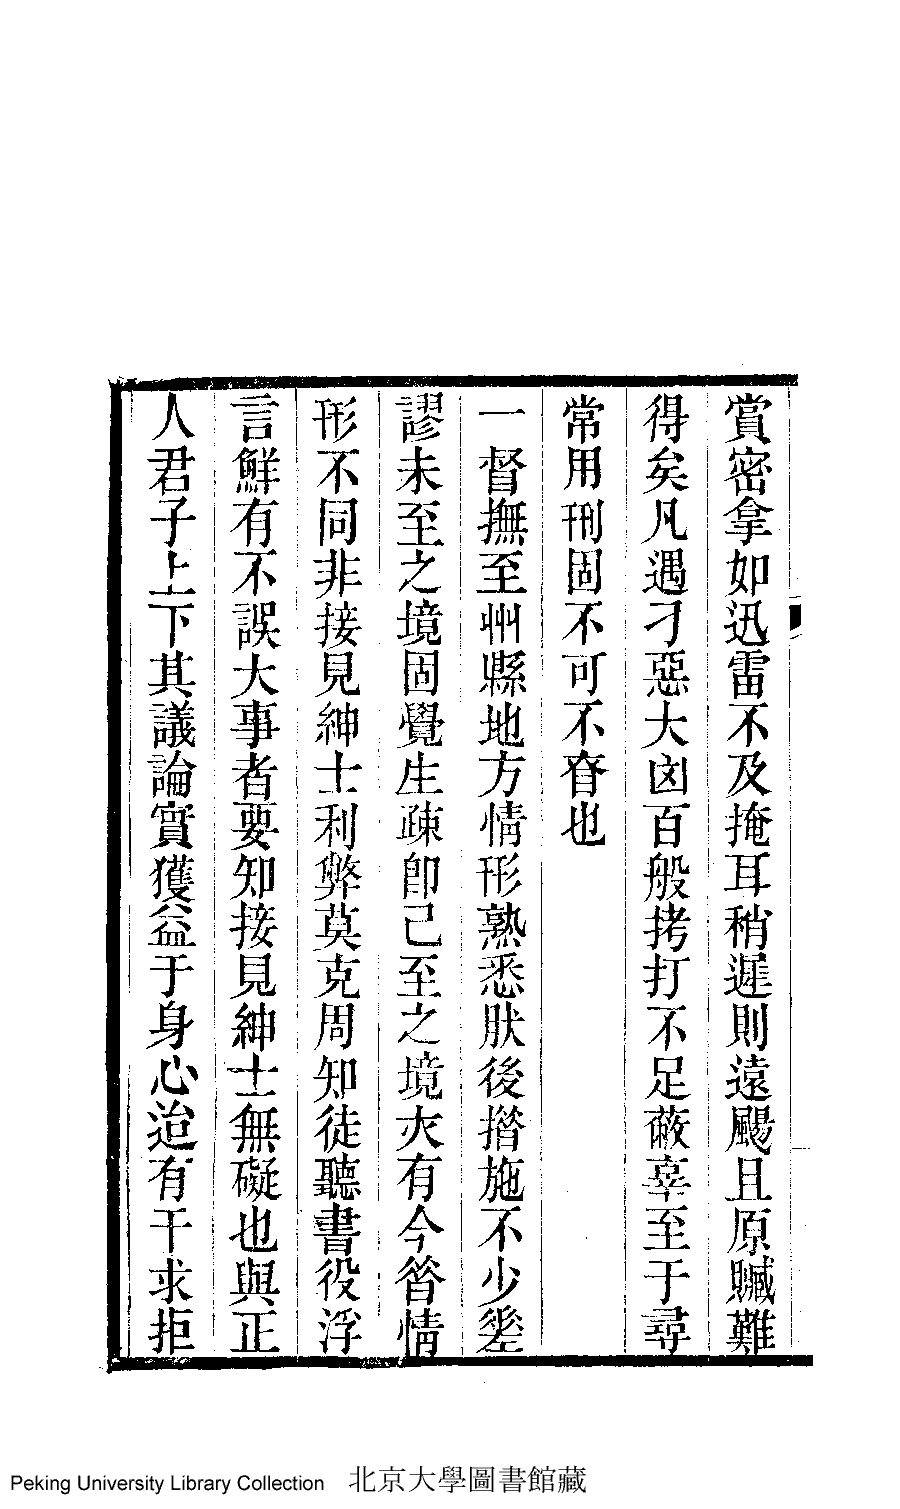 賞密拿如迅雷不及掩耳稍遲則遠颺且原贓難
得矣凡遇刁惡大凶百般拷打不足蔽辜至于尋
常用刑固不可不眘也
一督撫至州縣地方情形熟悉肰後措施不少差
謬未至之境固覺生疎卽己至之境亦有今昝情
形不同非接見紳士利弊莫克周知徒聽書役浮
言鮮有不誤大事者要知接見紳士無礙也與正
人君子上下其議論實獲益于身心迨有干求拒
Peking University Library Collection 北京大學圖書館藏